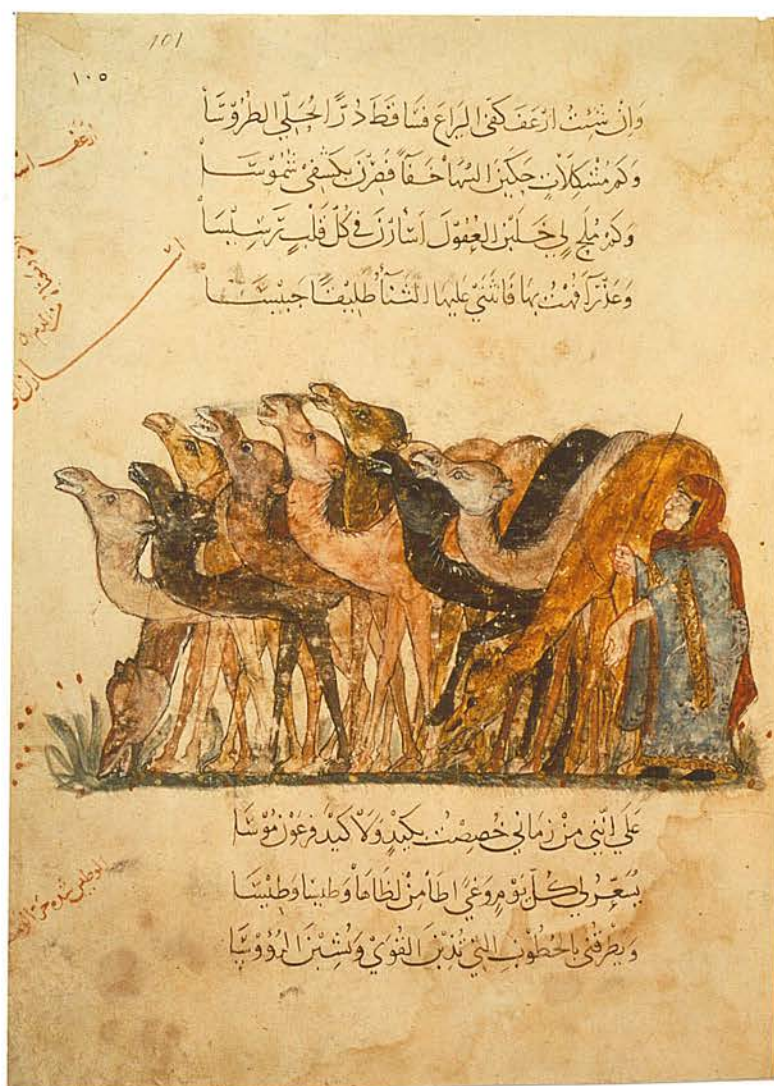 101
١٠٥
وَانْ شِئْتُ ارْعَفَ كَفّى اليَرَاعَ فسَاقطَ دُرًّا لحُلّي الطُّرُوسَا
وَكَم مُشْكلَاتٍ حَكَيْنَ السُّهَا خَفَآءً فَصِرْنَ بكَشْفِىْ شُمُوْسَا
وَكَمْ مُلَحٍ لِي خَلَبْنَ العُقولَ اسَأرْنَ فى كُلّ قَلْبٍ رَّسِيْسَا
وَعَذْرَآءَ فُهْتُ بهَا فَانْثَنَىْ عليهَا الثَّنَآءُ طَلِيْقًا حَبِيْسَا
عَلَى انّنِى مِنْ زمَاني خُصِصْتُ بكَيْدٍ وَلَا كَيْدَ فِرعَوْن مُوْسَا
يُسَعِّرُ لي كُلّ يَوْمٍ وَغًى اطَأ مِنْ لظَاهَا وَطِيْسًا وَطِيْسَا
وَيطْرقُنى بالخُطُوْبِ التِى يُذِبْنَ القُوَىْ وَيُشِبْنَ الرُؤوْسَا
ارعف